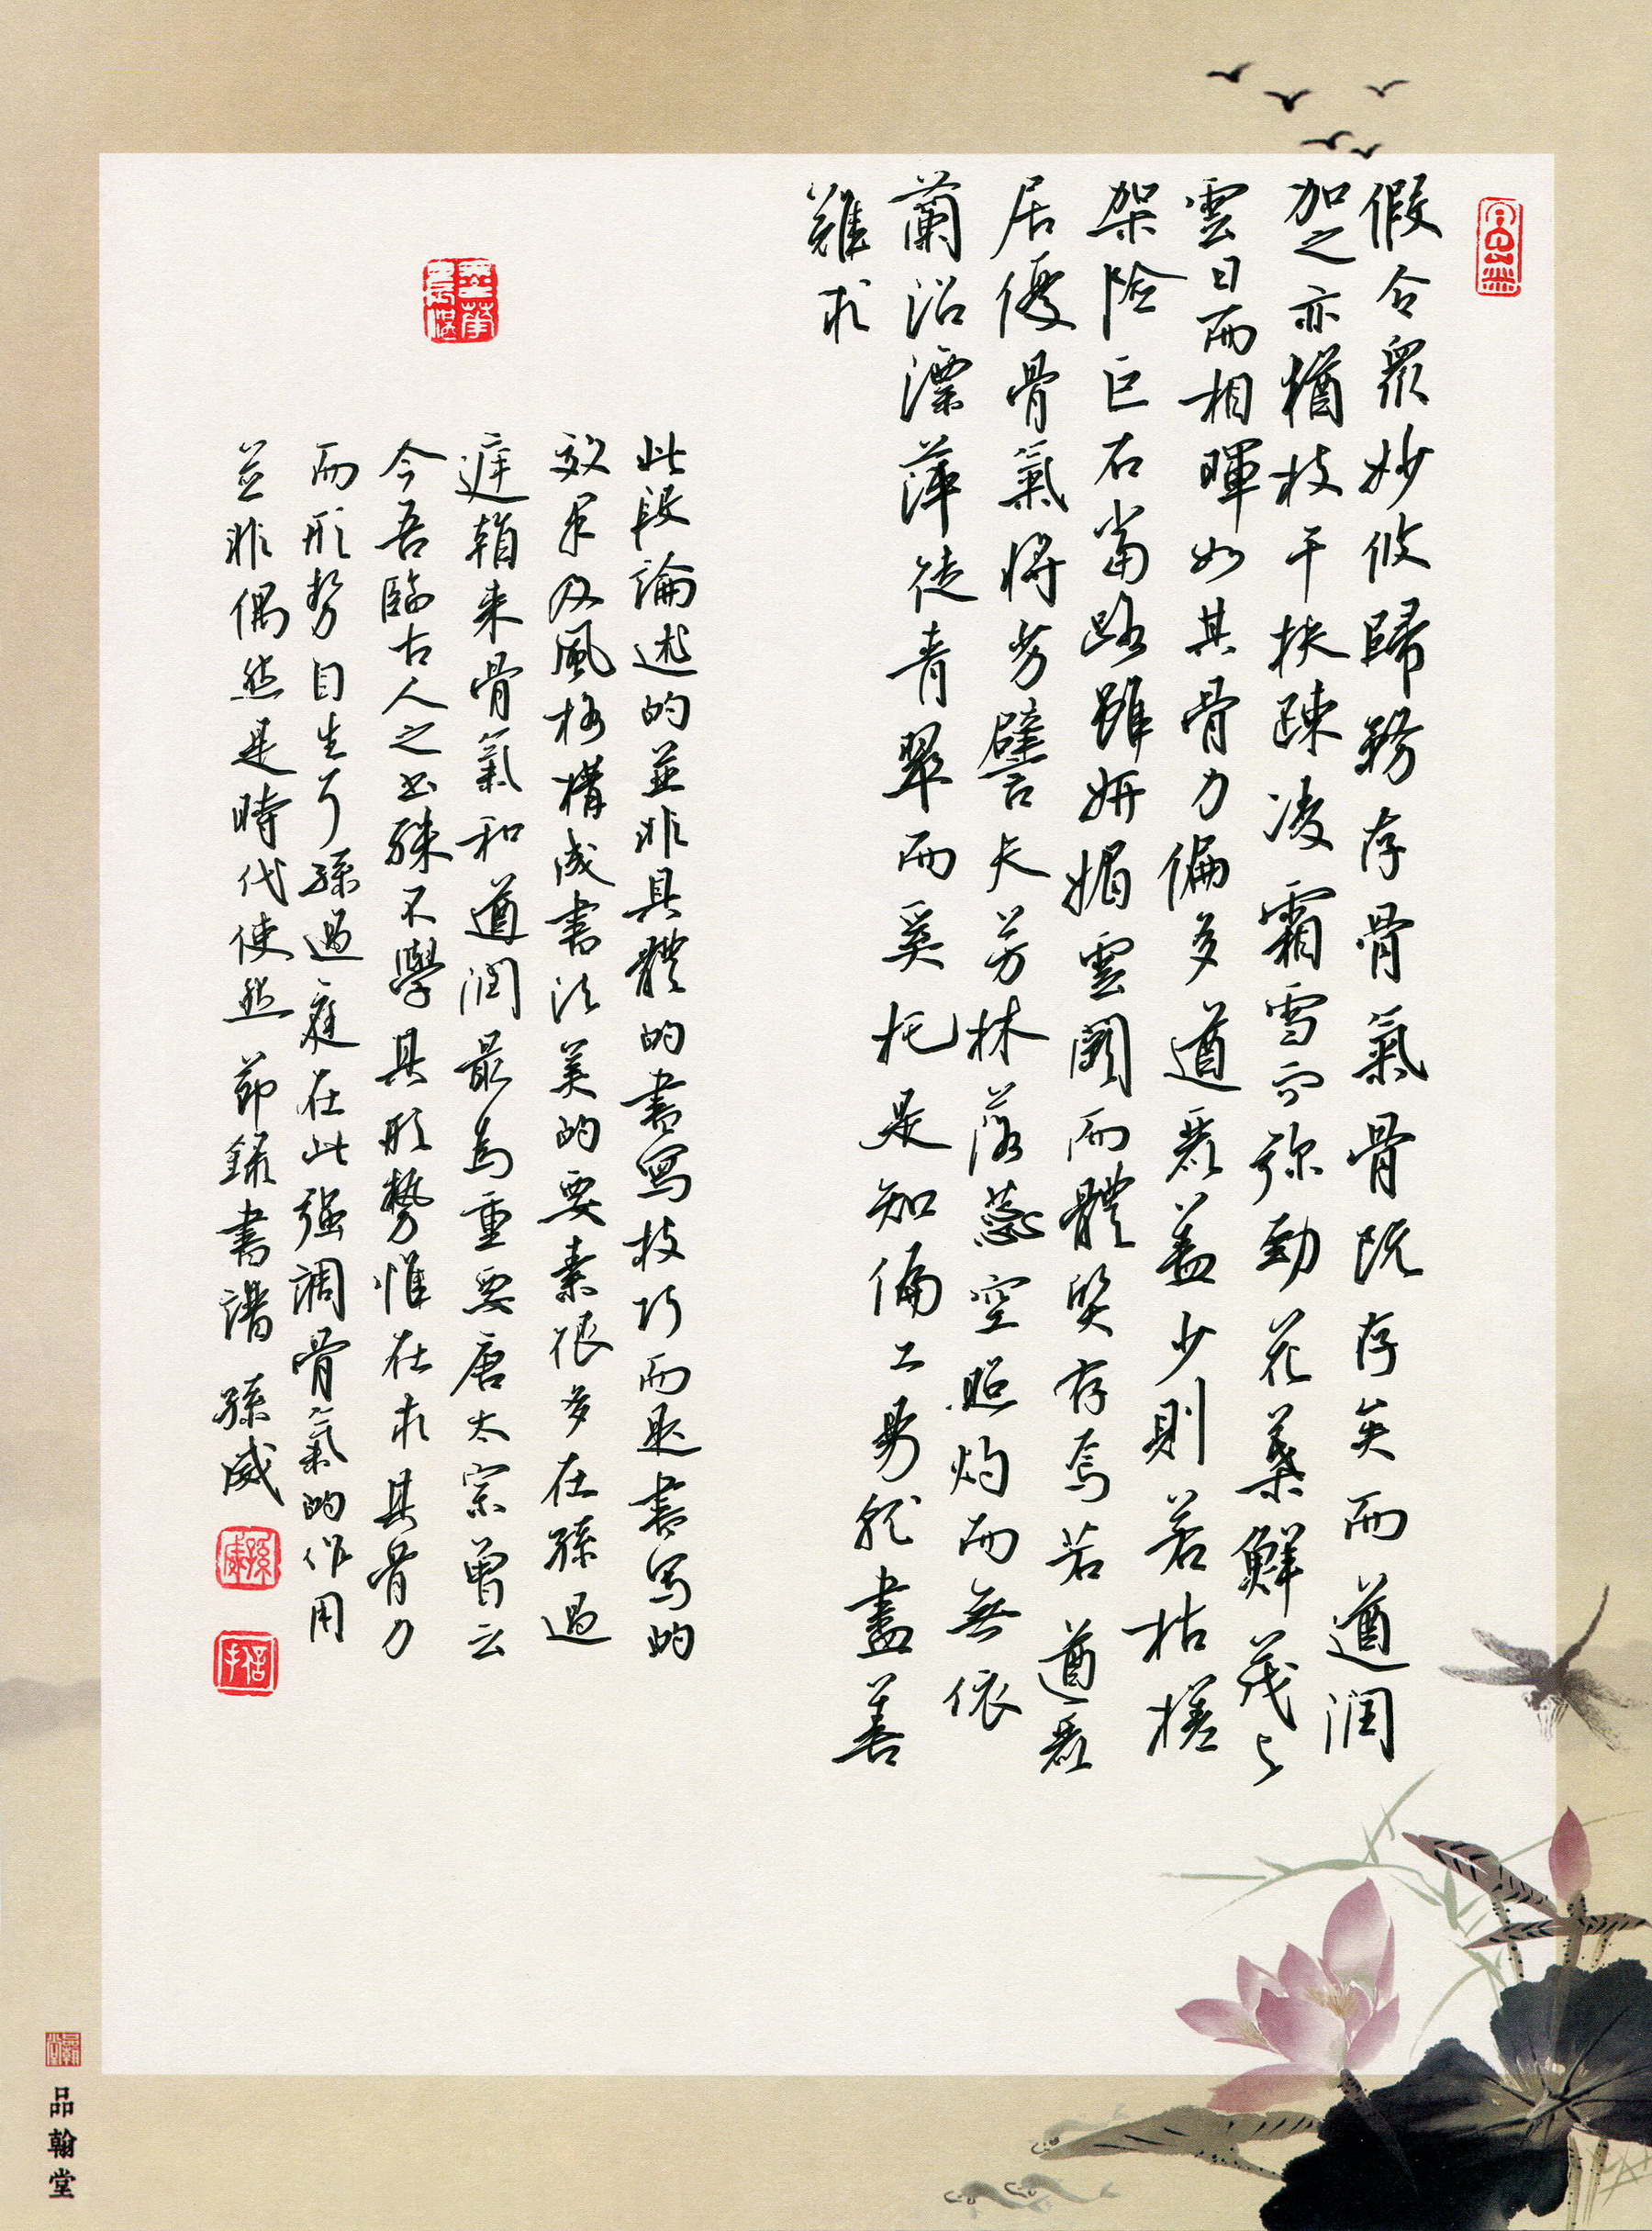 假令眾妙攸歸務存骨氣骨既存矣而遒潤
加之亦猶枝干扶疎凌霜雪而弥勁花葉鮮茂与
雲日而相暉如其骨力偏多遒麗蓋少則若枯槎
架險巨石當路雖妍媚雲闕而體質存焉若遒麗
居優骨氣將劣譬夫芳林落蕊空照灼而無依
蘭沼漂萍徒青翠而奚托是知偏工易就盡善
難求
此段論述的並非具體的書寫技巧而是書写的
效果及風格構成書法美的要素很多在孫過
庭看来骨氣和遒润最為重要唐太宗曾云
今吾臨古人之書殊不學其形勢惟在求其骨力
而形势自生耳孫過庭在此强調骨氣的作用
並非偶然是時代使然節錄書譜孫威
孫威
品翰堂